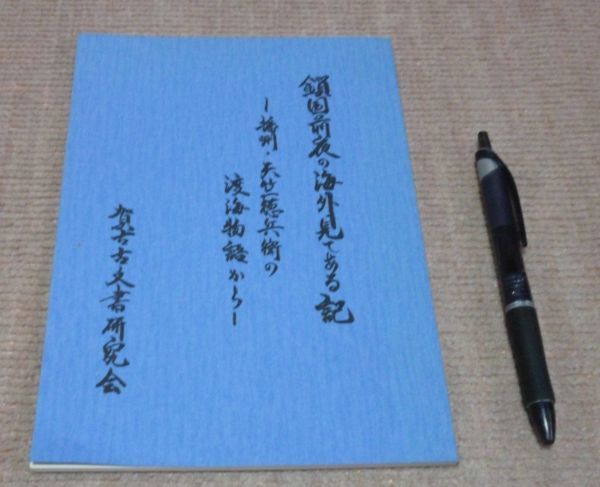 鎖国前夜の海外見てある記
ー播州・天竺徳兵衛の
渡海物語からー
賀古古文書研究会